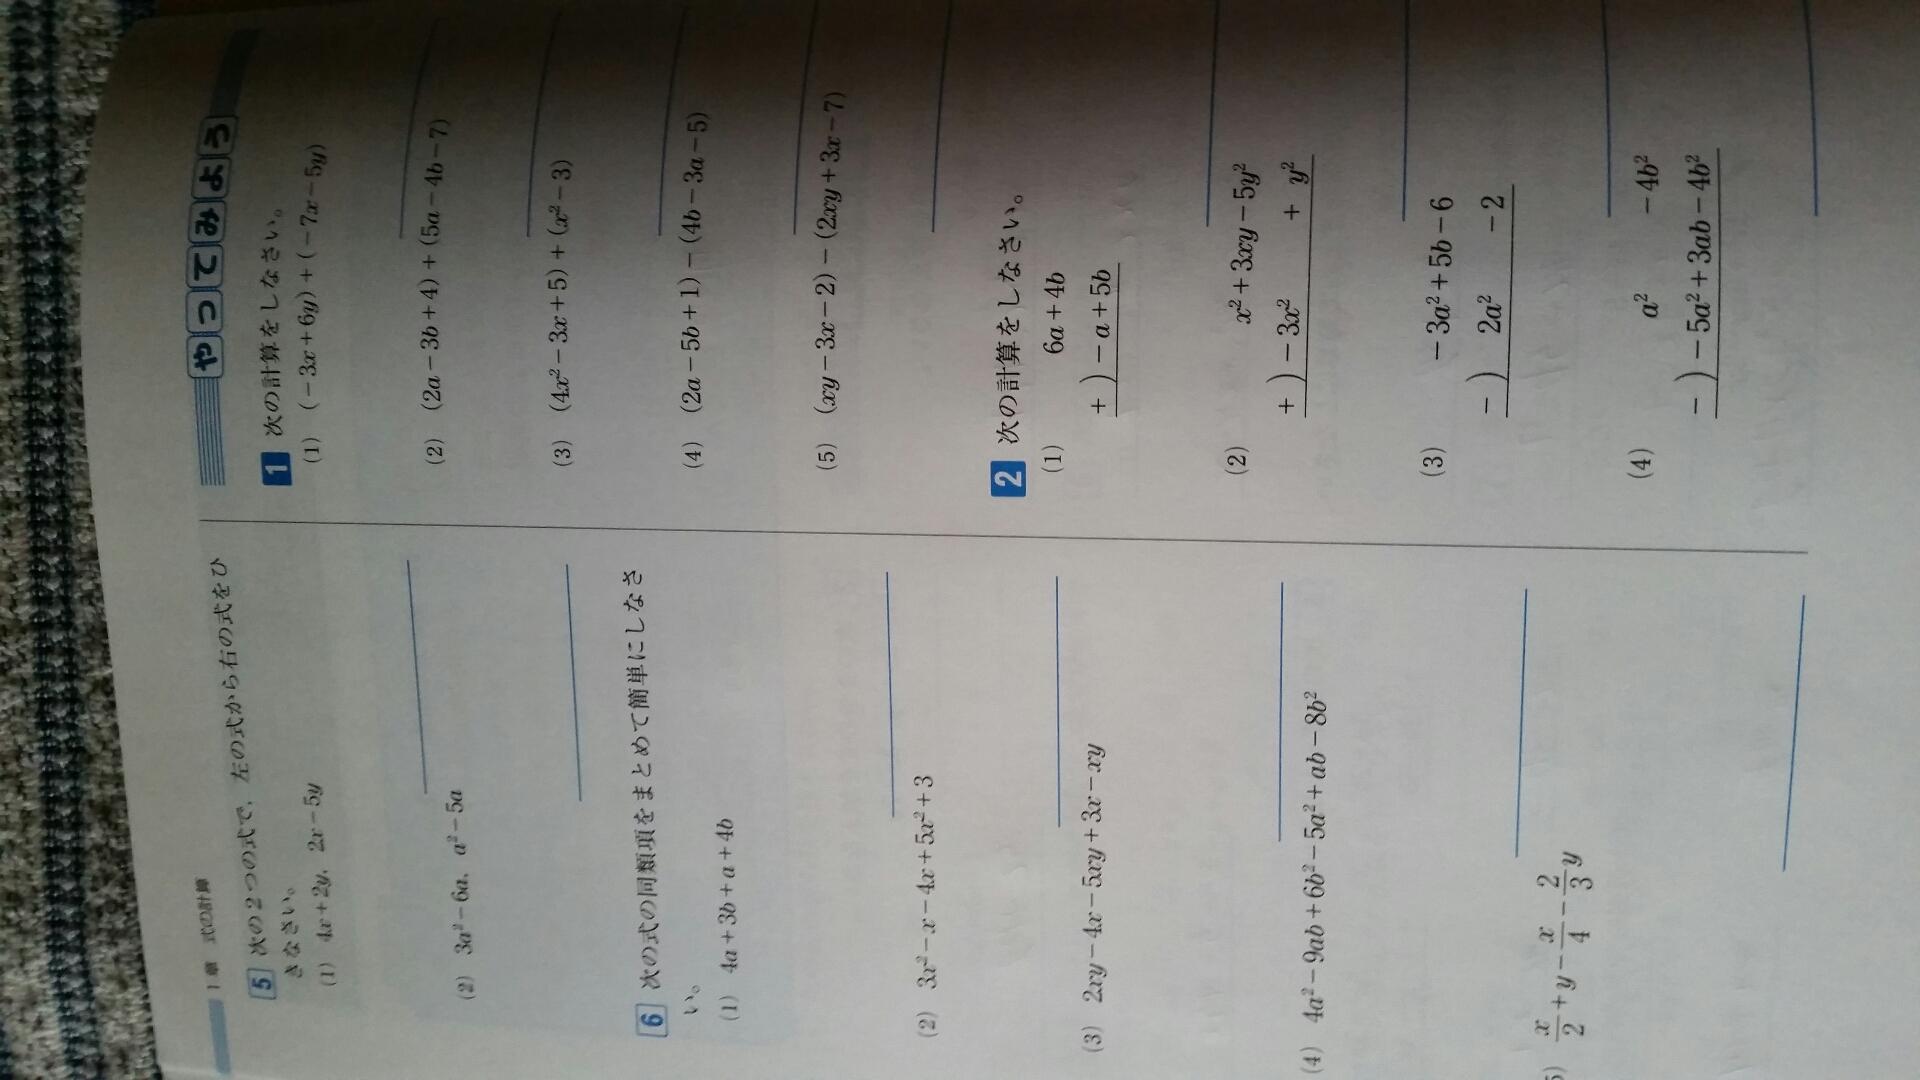 1章 式の計算
5 次の2つの式で、左の式から右の式をひ
きなさい。
(1) 4x+2y、2x−5y
(2) 3a²−6a、a²−5a
6 次の式の同類項をまとめて簡単にしなさ
い。
(1) 4a+3b+a+4b
(2) 3x²−x−4x+5x²+3
(3) 2xy−4x−5xy+3x−xy
(4) 4a²−9ab+6b²−5a²+ab−8b²
5) x/2+y−x/4−2/3y
やってみよう
1 次の計算をしなさい。
(1) (−3x+6y)+(−7x−5y)
(2) (2a−3b+4)+(5a−4b−7)
(3) (4x²−3x+5)+(x²−3)
(4) (2a−5b+1)−(4b−3a−5)
(5) (xy−3x−2)−(2xy+3x−7)
2 次の計算をしなさい。
(1) 6a+4b
+)−a+5b
(2) x²+3xy−5y²
+)−3x² + y²
(3) −3a²+5b−6
−) 2a² −2
(4) a² −4b²
−)−5a²+3ab−4b²